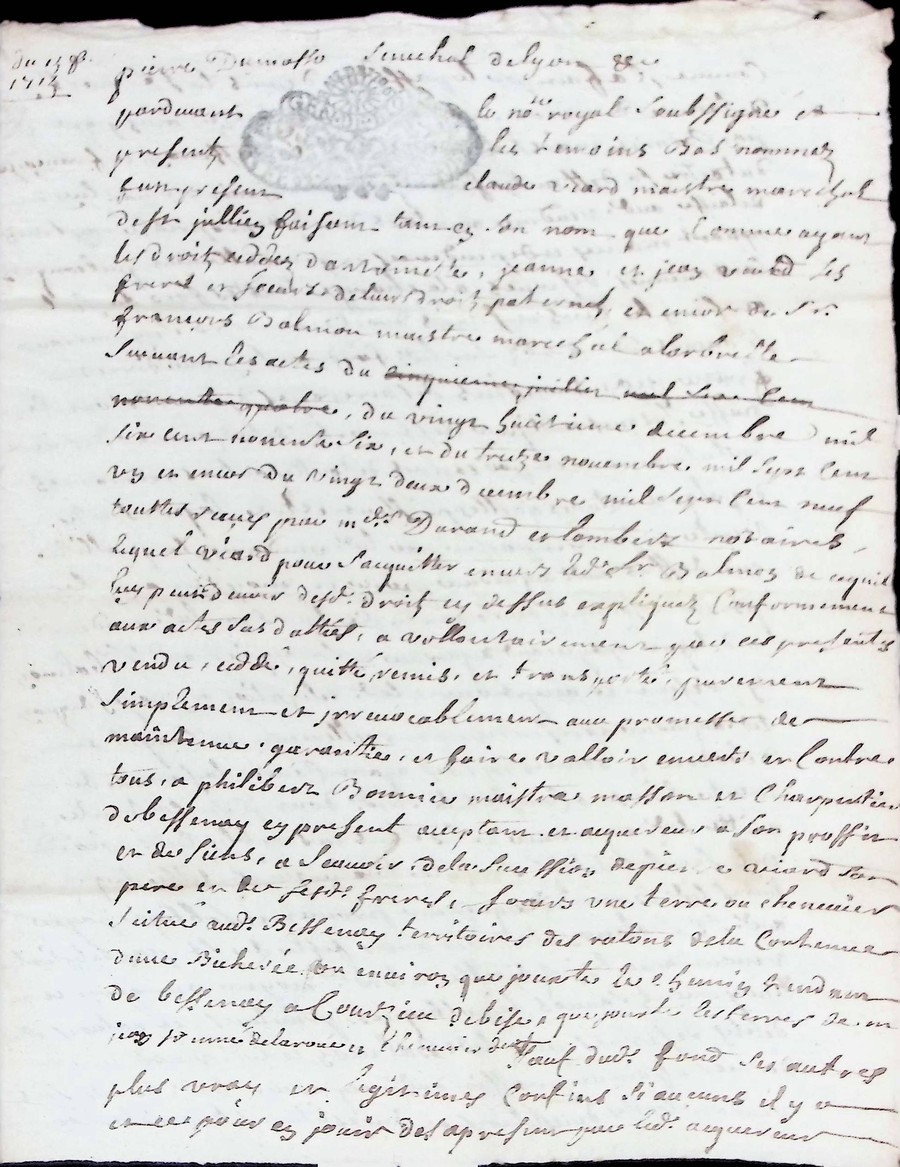 du 15 8.
1713
pierre Dumosso Senechal de lyon &c
pardevant le no.re royal Soubssigné et
present les temoins Bas nommez
fut present claude viard maistre marechal
de St jullien faisant tant en son nom que Comme ayant
les droitz ceddez d'antoinette, jeanne et jean viard ses
freres et soeurs de leurs droitz paternels, et encor de Sr.
françois Balmon maistre marechal alarbrelle
suivant les actes du cinquieme juillet mil six cent
nonente quatre, du vingt huitieme decembre mil
six cent nonente six, et du treize novembre mil sept cent
un et encor du vingt deux decembre mil sept cent neuf
touttes receus par mes Durand et lombert notaires,
lequel viard pour s'acquitter envers led. Sr. Balmon de ce qu'il
luy peut devoir desd. droitz cy dessus expliquez Conformement
aux actes sus dattés, a vollontairement par ces presentes
vendu, ceddé, quitté, remis, et transporté, purement
Simplement et irrevocablement aux promesses de
maintenue, garantie, et faire valloir envers et Contre
tous, a philibert Bonnier maistre masson et Charpentier
de bessenay cy present acceptant et acquereur a son proffit
et des siens, a scavoir de la succession de pierre viard son
pere et de sesd. freres, soeurs une terre ou chenevier
scituée aud. Bessenay territoires des ratons de la Contenue
d'une Bicherée ou environ que jouxte le chemin tendant
de bessenay a Courzieu de bise, que jouxte les terres de m
jean pomme delaroue et chenevier
sauf dud. fond ses autres
plus vray et legitimes Confins si aucuns il y a
et ce pour en jouir des apresent par led. acquereur